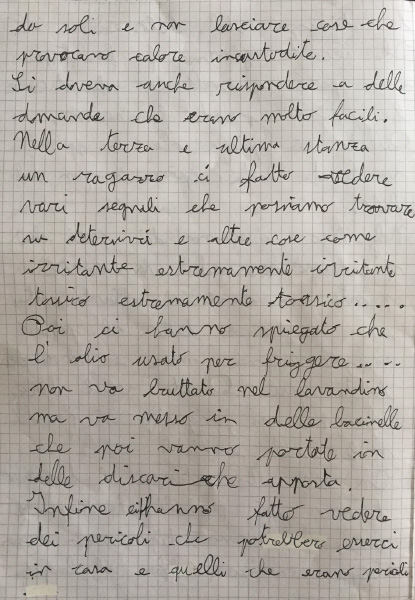 da soli e non lasciare cose che
provocano calore incustodite.
Si doveva anche rispondere a delle
domande che erano molto facili.
Nella terza e ultima stanza
un ragazzo ci fatto vedere
vari segnali che possiamo trovare
su detersivi e altre cose come
irritante estremamente irritante
tossico estremamente tossico.....
Poi ci hanno spiegato che
l'olio usato per friggere.....
non va buttato nel lavandino
ma va messo in delle bacinelle
che poi vanno portate in
delle discariche apposta.
Infine ci hanno fatto vedere
dei pericoli che potrebbero esserci
in casa e quelli che erano pericoli
.